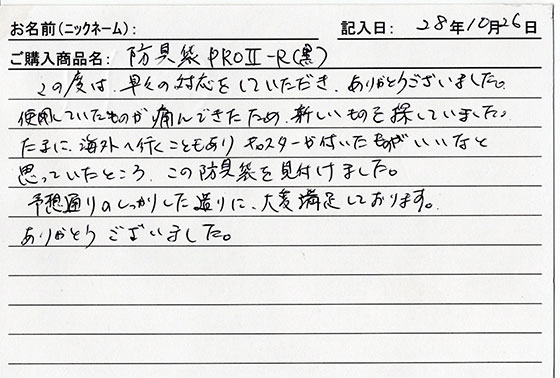 お名前(ニックネーム): 記入日: 28年10月26日
ご購入商品名: 防具袋PROⅡ-R(黒)
この度は、早々の対応をしていただき、ありがとうございました。
使用していたものが痛んできたため、新しいものを探していました。
たまに、海外へ行くこともあり キャスターが付いたものがいいなと
思っていたところ、この防具袋を見付けました。
予想通りのしっかりした造りに、大変満足しております。
ありがとうございました。